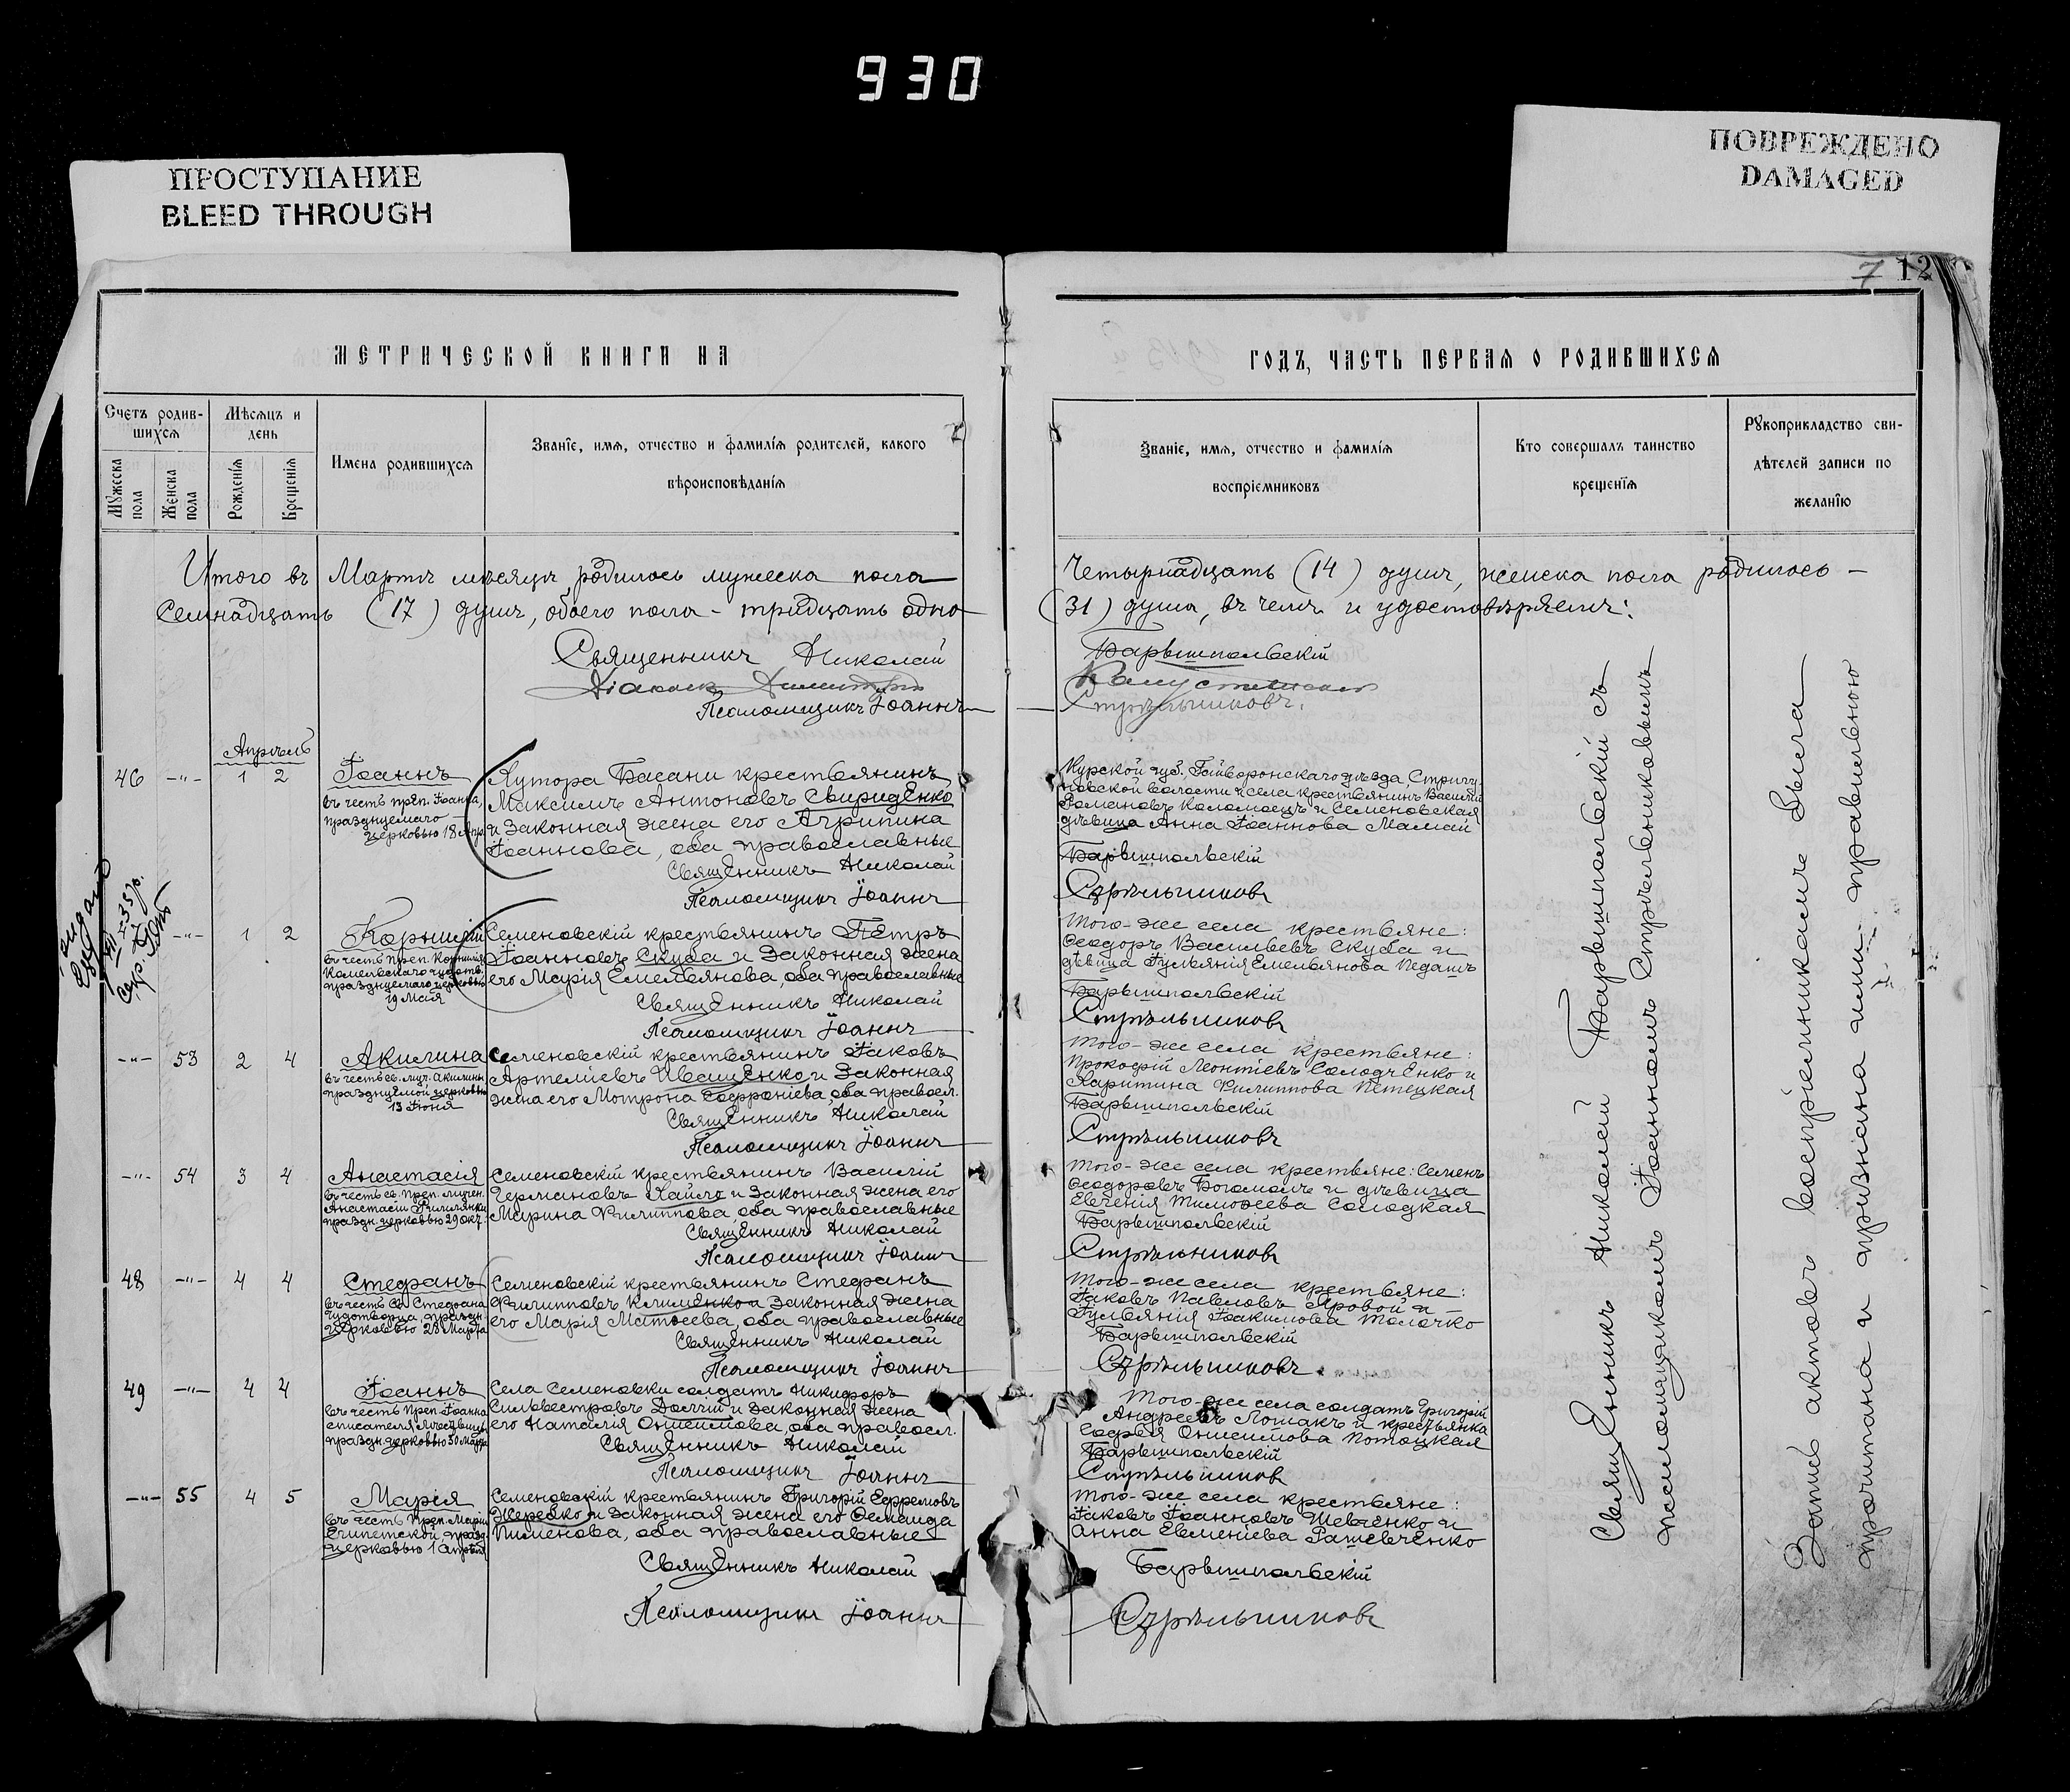 930
ПРОСТУПАНИЕ
BLEED THROUGH
ПОВРЕЖДЕНО
DAMAGED
7 12
МЕТРИЧЕСКОЙ КНИГИ НА
ГОДЪ, ЧАСТЬ ПЕРВАЯ О РОДИВШИХСЯ
Счетъ родив-
шихся
Мужеска
пола
Женска
пола
Мѣсяцъ и
день
Рожденія
Крещенія
Имена родившихся
Званіе, имя, отчество и фамилія родителей, какого
вѣроисповѣданія
Званіе, имя, отчество и фамилія
воспріемниковъ
Кто совершалъ таинство
крещенія
Рукоприкладство сви-
дѣтелей записи по
желанію
Итого въ Мартѣ мѣсяцѣ родилось мужеска пола
Четырнадцать (14) душъ, женска пола родилось —
Семнадцать (17) душъ, обоего пола - тридцать одна
(31) душа, въ чемъ и удостовѣряемъ:
Священникъ Николай Барышпольскій
Діаконъ Димитрій
Псаломщикъ Іоаннъ Стрѣльниковъ.
Апрѣль
46 -"- 1 2
Іоаннъ
въ честь преп. Іоанна,
празднуемаго
церковью 18 Апр.
Хутора Басани крестьянинъ
Максимъ Антоновъ Свириденко
и законная жена его Агрипина
Іоаннова, оба православные
Священникъ Николай
Псаломщикъ Іоаннъ
Курской губ. Грайворонскаго уѣзда, Стригу
новской волости и села крестьянинъ Василій
Романовъ Коломоецъ и Семеновская
дѣвица Анна Іоаннова Мамай
Барышпольскій
Стрѣльниковъ
-"- 1 2
Корнилій
въ честь преп. Корнилія
Комельскаго чудотв.
празднуемаго церковью
19 Мая
Семеновскій крестьянинъ Петръ
Іоанновъ Скуба и законная жена
его Марія Емельянова, оба православные
Священникъ Николай
Псаломщикъ Іоаннъ
Того-же села крестьяне:
Феодоръ Васильевъ Скуба и
дѣвица Іульянія Емельянова Педашъ
Барышпольскій
Стрѣльниковъ
-"- 53 2 4
Акилина
въ честь св. муч. Акилины
празднуемой церковью
13 Іюня
Семеновскій крестьянинъ Іаковъ
Артеміевъ Иващенко и законная
жена его Мотрона Софроніева, оба правосл.
Священникъ Николай
Псаломщикъ Іоаннъ
Того-же села крестьяне:
Прокофій Леонтіевъ Солодченко и
Харитина Филиппова Петецкая
Барышпольскій
Стрѣльниковъ
-"- 54 3 4
Анастасія
въ честь св. преп. мучен.
Анастасіи Римлянки
праздн. церковью 29 окт.
Семеновскій крестьянинъ Василій
Германовъ Хайло и законная жена его
Марина Филиппова, оба православные
Священникъ Николай
Псаломщикъ Іоаннъ
Того-же села крестьяне: Семенъ
Феодоровъ Богомолъ и дѣвица
Евгенія Тимофеева Солодкая
Барышпольскій
Стрѣльниковъ
48 -"- 4 4
Стефанъ
въ честь св. Стефана
чудотворца, праздн.
церковью 28 Марта
Семеновскій крестьянинъ Стефанъ
Филипповъ Клименко и законная жена
его Марія Матфеева, оба православные
Священникъ Николай
Псаломщикъ Іоаннъ
Того-же села крестьяне:
Іаковъ Павловъ Яровой и -
Іульянія Іакимова Толочко
Барышпольскій
Стрѣльниковъ
49 -"- 4 4
Іоаннъ
въ честь преп. Іоанна
списателя Лѣствицы
праздн. церковью 30 Марта
Села Семеновки солдатъ Никифоръ
Сильвестровъ Долгій и законная жена
его Наталія Онисимова, оба правосл.
Священникъ Николай
Псаломщикъ Іоаннъ
Того-же села солдатъ Григорій
Андреевъ Лошакъ и крестьянка
Софья Онисимова Потоцкая
Барышпольскій
Стрѣльниковъ
-"- 55 4 5
Марія
въ честь преп. Маріи
Египетской, празд.
церковью 1 апрѣля
Семеновскій крестьянинъ Григорій Ефремовъ
Жеребко и законная жена его
Пименова, оба православные
Священникъ Николай
Псаломщикъ Іоаннъ
Того-же села крестьяне:
Іаковъ Іоанновъ Шевченко и
Анна Евменіева Рашевченко
Барышпольскій
Стрѣльниковъ
Священникъ Николай Барышпольскій съ
псаломщикомъ Іоанномъ Стрѣльниковымъ
Запись актовъ воспріемникамъ была
прочитана и признана ими правильною